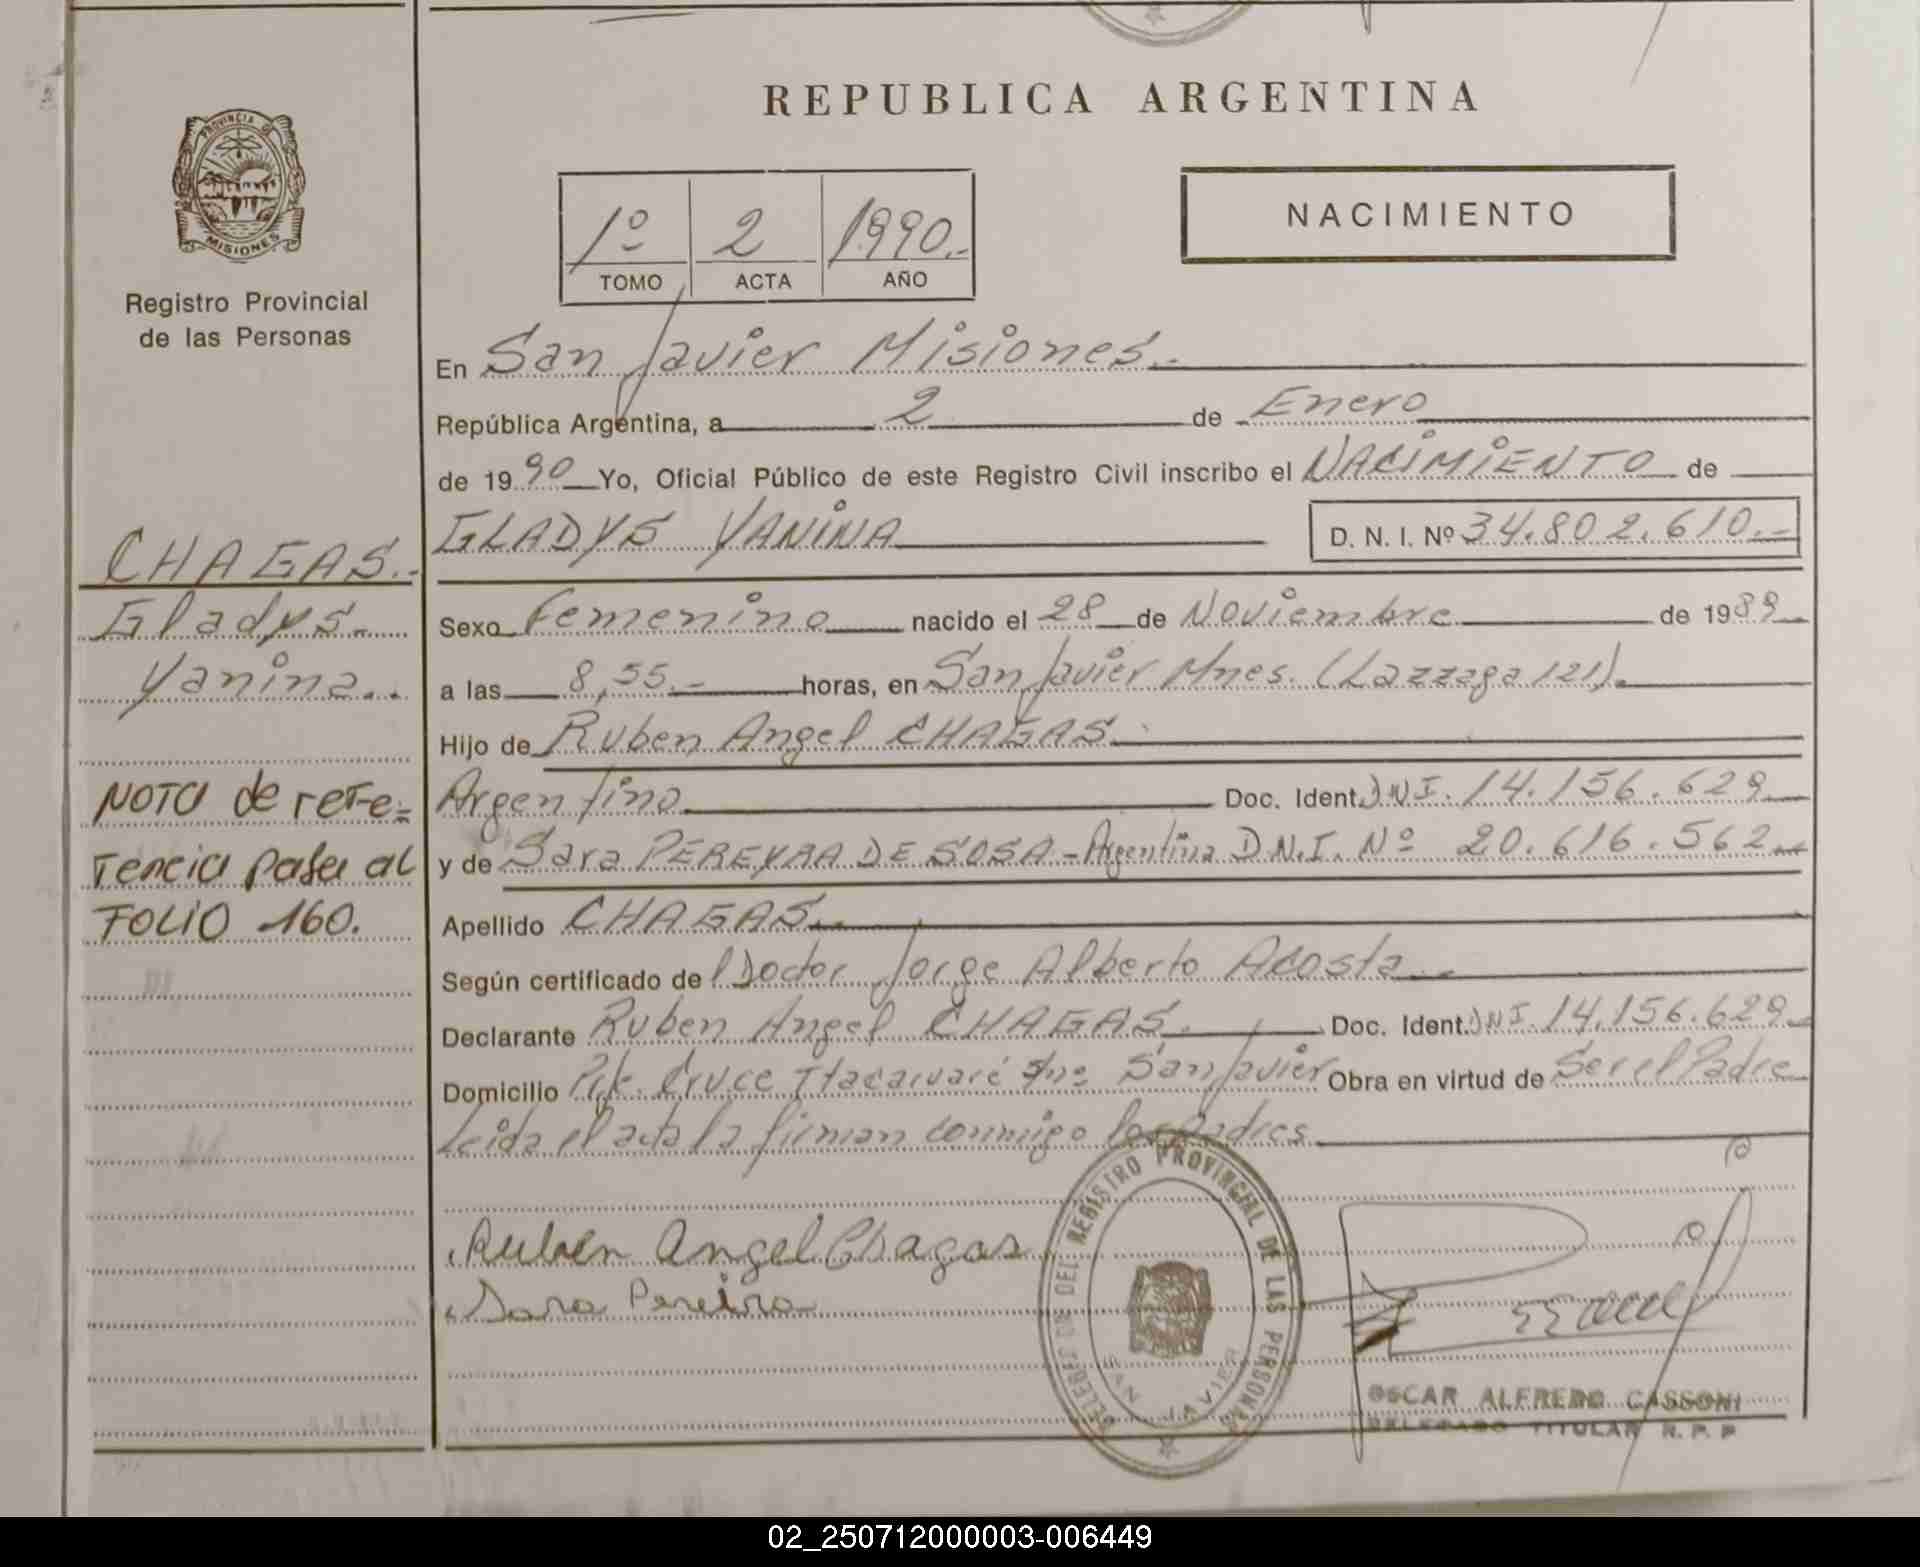 REPUBLICA ARGENTINA
PROVINCIA DE
MISIONES
Registro Provincial
de las Personas
1º 2 1990.-
TOMO ACTA AÑO
NACIMIENTO
En San Javier Misiones.-
República Argentina, a 2 de Enero
de 1990 Yo, Oficial Público de este Registro Civil inscribo el NACIMIENTO de
GLADYS YANINA D. N. I. Nº 34.802.610.-
CHAGAS.-
Gladys.-
Yanina..
Sexo Femenino nacido el 28 de Noviembre de 1989
a las 8,55.- horas, en San Javier Mnes. (Lazzaga 121).
Hijo de Ruben Angel CHAGAS.
Argentino Doc. Ident. DNI. 14.156.629
y de Sara PEREYRA DE SOSA - Argentina D.N.I. Nº 20.616.562
Apellido CHAGAS.
Según certificado de l Doctor Jorge Alberto Acosta
Declarante Ruben Angel CHAGAS. Doc. Ident. DNI. 14.156.629
Domicilio Cruce Itacaruaré S/nº San Javier Obra en virtud de Ser el Padre
Leida el acta la firman conmigo los Padres.
NOTA de refe=
rencia pasa al
FOLIO 160.
Ruben Angel Chagas
Sara Pereira
DEL REGISTRO PROVINCIAL DE LAS PERSONAS
SAN JAVIER
OSCAR ALFREDO CASSONI
DELEGADO TITULAR R. P. P
02_250712000003-006449